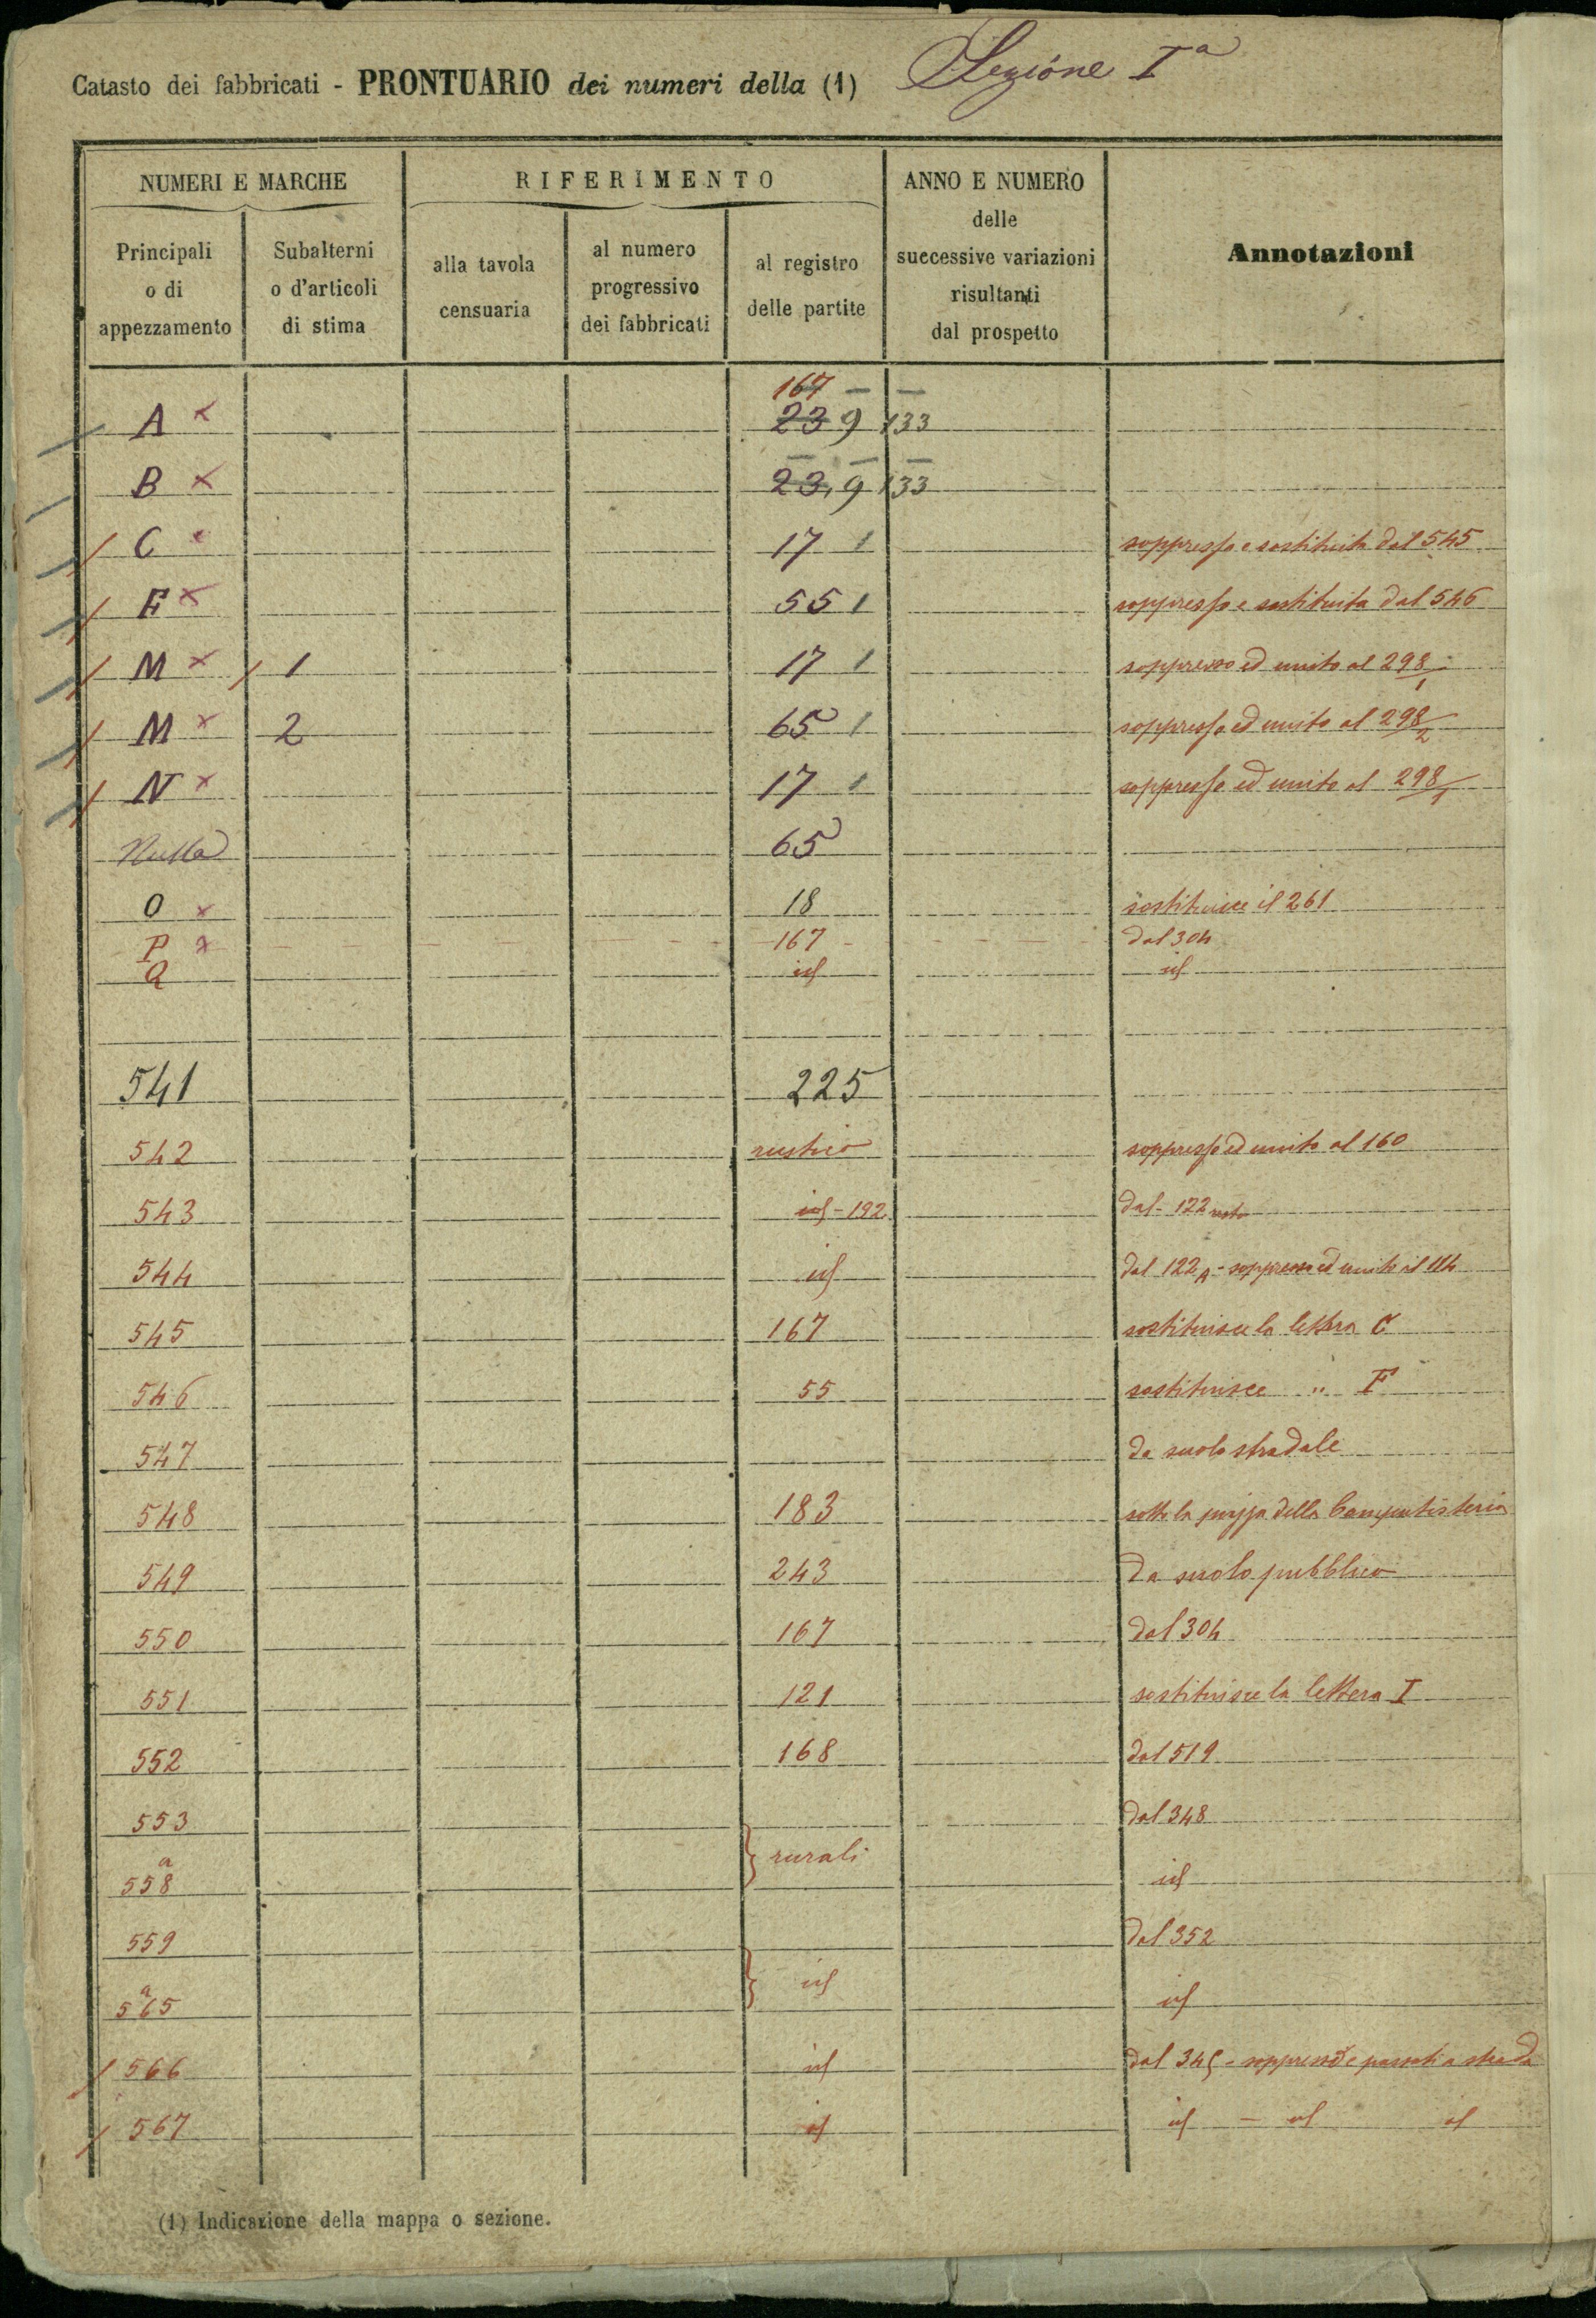 Catasto dei fabbricati - PRONTUARIO dei numeri della (1) Sezione Iª
NUMERI E MARCHE
RIFERIMENTO
ANNO E NUMERO
delle
successive variazioni
risultanti
dal prospetto
Annotazioni
Principali
o di
appezzamento
Subalterni
o d'articoli
di stima
alla tavola
censuaria
al numero
progressivo
dei fabbricati
al registro
delle partite
167 — —
A x 23 9 133
B x 23, 9 133
/ C x 17 1 soppresso e sostituito dal 545
/ F x 55 1 soppresso e sostituita dal 546
/ M x / 1 17 1 soppresso ed unito al 298/1
/ M x 2 65 1 soppresso ed unito al 298/2
/ N x 17 1 soppresso ed unito al 298/1
Nulla 65
O x 18 sostituisce il 261
P x 167 dal 304
Q id id
541 225
542 rustico soppresso ed unito al 160
543 id - 192 dal - 122 resto
544 id dal 122 A - soppresso ed unito il 114
545 167 sostituisce la lettera C
546 55 sostituisce " F
547 da suolo stradale
548 183 sotto la piazza della
549 243 da suolo pubblico
550 167 dal 304
551 121 sostituisce la lettera I
552 168 dal 519
553 dal 348
} rurali
a
558 id
559 dal 352
} id
a
565 id
/ 566 id dal 345 - soppresso e passato a strada
/ 567 id id — id id
(1) Indicazione della mappa o sezione.